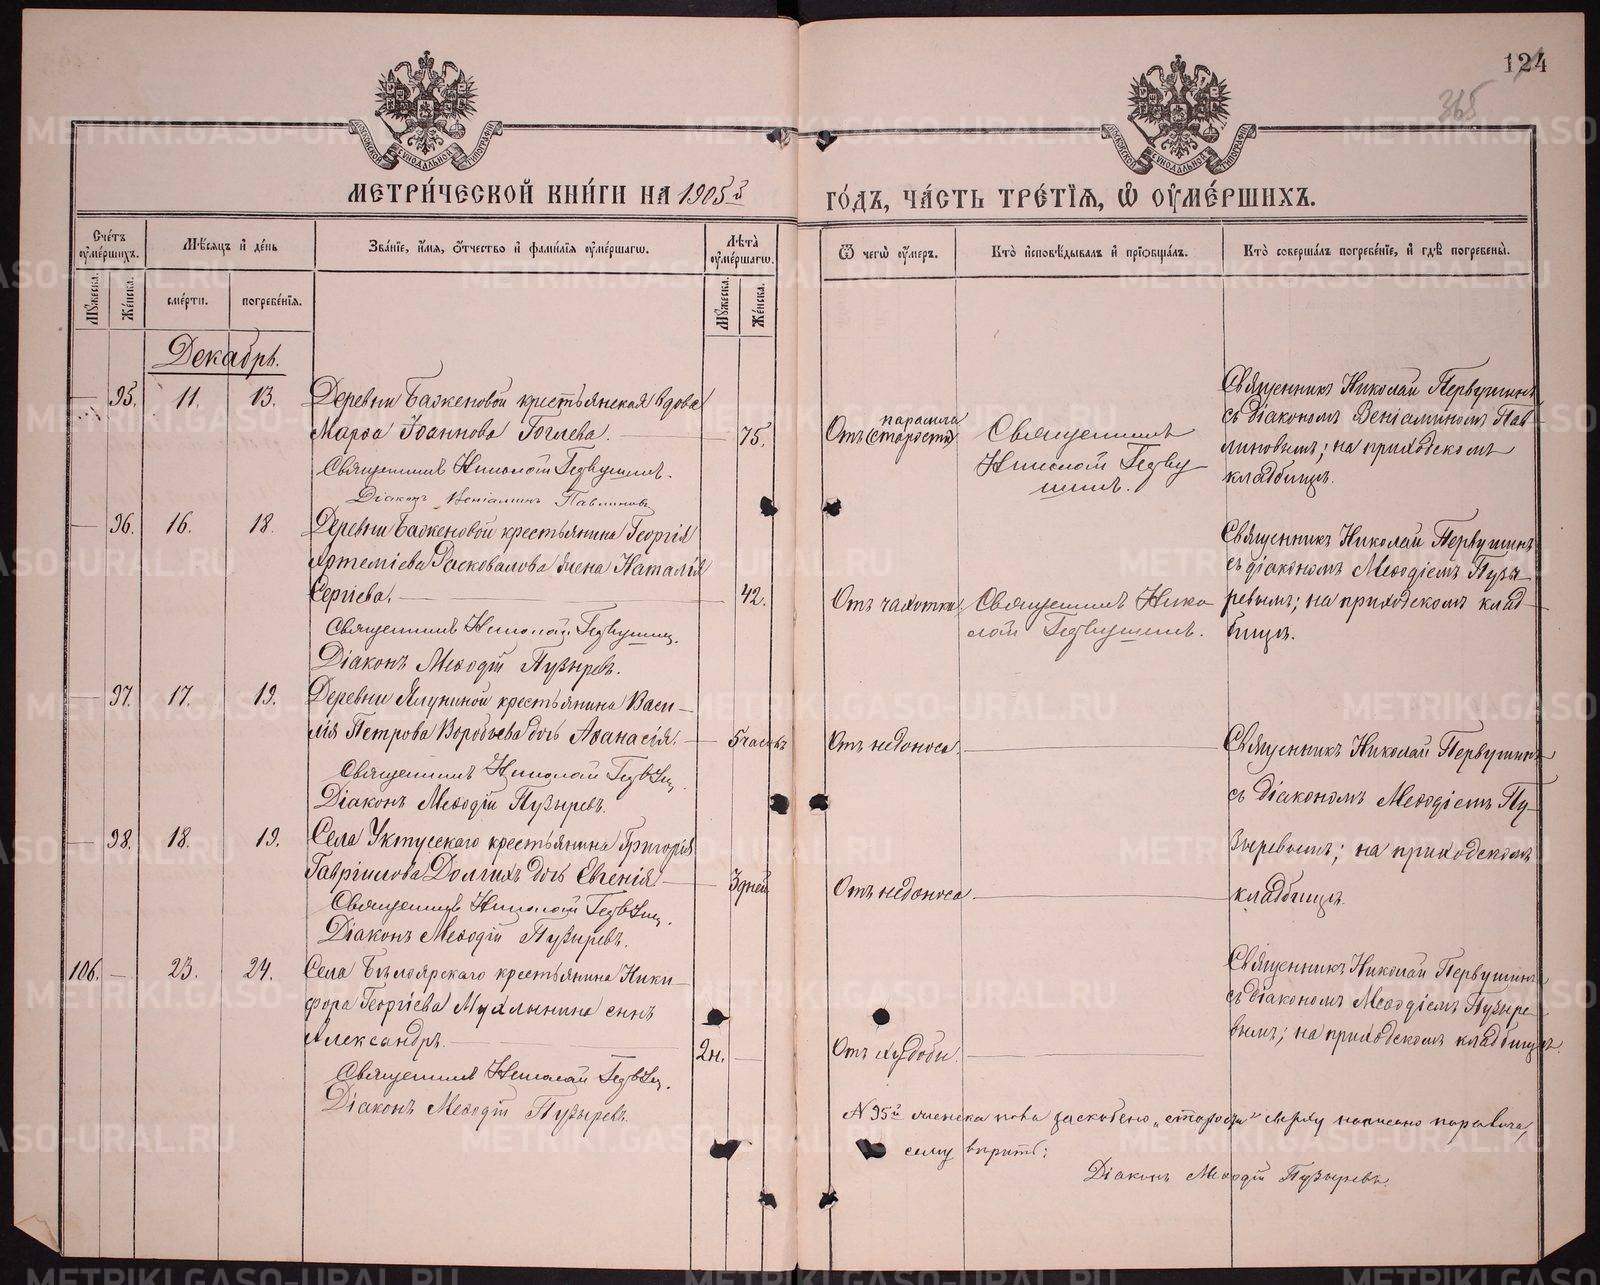 124
365
МЕТРИ́ЧЕСКОЙ КНИ́ГИ НА 1905й
ГО́ДЪ, ЧА́СТЬ ТРЕ́ТІЯ, Ѽ ОУ҆МЕ́РШИХЪ.
Сче́тъ оу҆ме́ршихъ.
Мѣ́сяцъ и҆ де́нь
Зва́нїе, и҆́мя, ѻ҆́тчество и҆ фами́лїя оу҆ме́ршагѡ.
Лѣта̀ оу҆ме́ршагѡ.
Ѿ чегѡ̀ оу҆́меръ.
Кто̀ и҆сповѣ́дывалъ и҆ прїѻбща́лъ.
Кто̀ соверша́лъ погребе́нїе, и҆ гдѣ̀ погребены̀.
Мꙋ́жеска.
Же́нска.
сме́рти.
погребе́нїѧ.
Мꙋ́жеска.
Же́нска.
Декабрь.
— 95. 11. 13. Деревни Баженовой крестьянская вдова
Марѳа Іоаннова Гоглева. — 75.
Священникъ Николай Первушинъ.
Діаконъ Веніаминъ Павлиновъ
паралича
Отъ (старости)
Священникъ
Николай Перву
шинъ.
Священникъ Николай Первушинъ
съ діакономъ Веніаминомъ Пав-
линовымъ; на приходскомъ
кладбищѣ.
— 96. 16. 18. Деревни Баженовой крестьянина Георгія
Артеміева Расковалова жена Наталія
Сергіева. — 42.
Священникъ Николай Первушинъ.
Діаконъ Меѳодій Пузыревъ.
Отъ чахотки.
Священникъ Нико-
лай Первушинъ.
Священникъ Николай Первушинъ
съ діакономъ Меѳодіемъ Пузы-
ревымъ; на приходскомъ клад-
бищѣ.
— 97. 17. 19. Деревни Ялуниной крестьянина Васи-
лія Петрова Воробьева дочь Аѳанасія. — 5 часовъ
Священникъ Николай Первушинъ
Діаконъ Меѳодій Пузыревъ.
Отъ недоноса. —
Священникъ Николай Первушинъ
съ діакономъ Меѳодіемъ Пу-
зыревымъ; на приходскомъ
кладбищѣ.
— 98. 18. 19. Села Уктусскаго крестьянина Григорія
Гавріилова Долгихъ дочь Евгенія. — 3 дней
Священникъ Николай Первушинъ.
Діаконъ Меѳодій Пузыревъ.
Отъ недоноса. —
106. — 23. 24. Села Бѣлоярскаго крестьянина Ники-
фора Георгіева Мухлынина сынъ
Александръ. — 2 н. —
Священникъ Николай Первушинъ.
Діаконъ Меѳодій Пузыревъ.
Отъ худобы. —
Священникъ Николай Первушинъ
съ діакономъ Меѳодіемъ Пузыре-
вымъ; на приходскомъ кладбищѣ.
№ 95й женска пола заскоблено „старости“ сверху написано паралича,
сему вѣрить:
Діаконъ Меѳодій Пузыревъ.